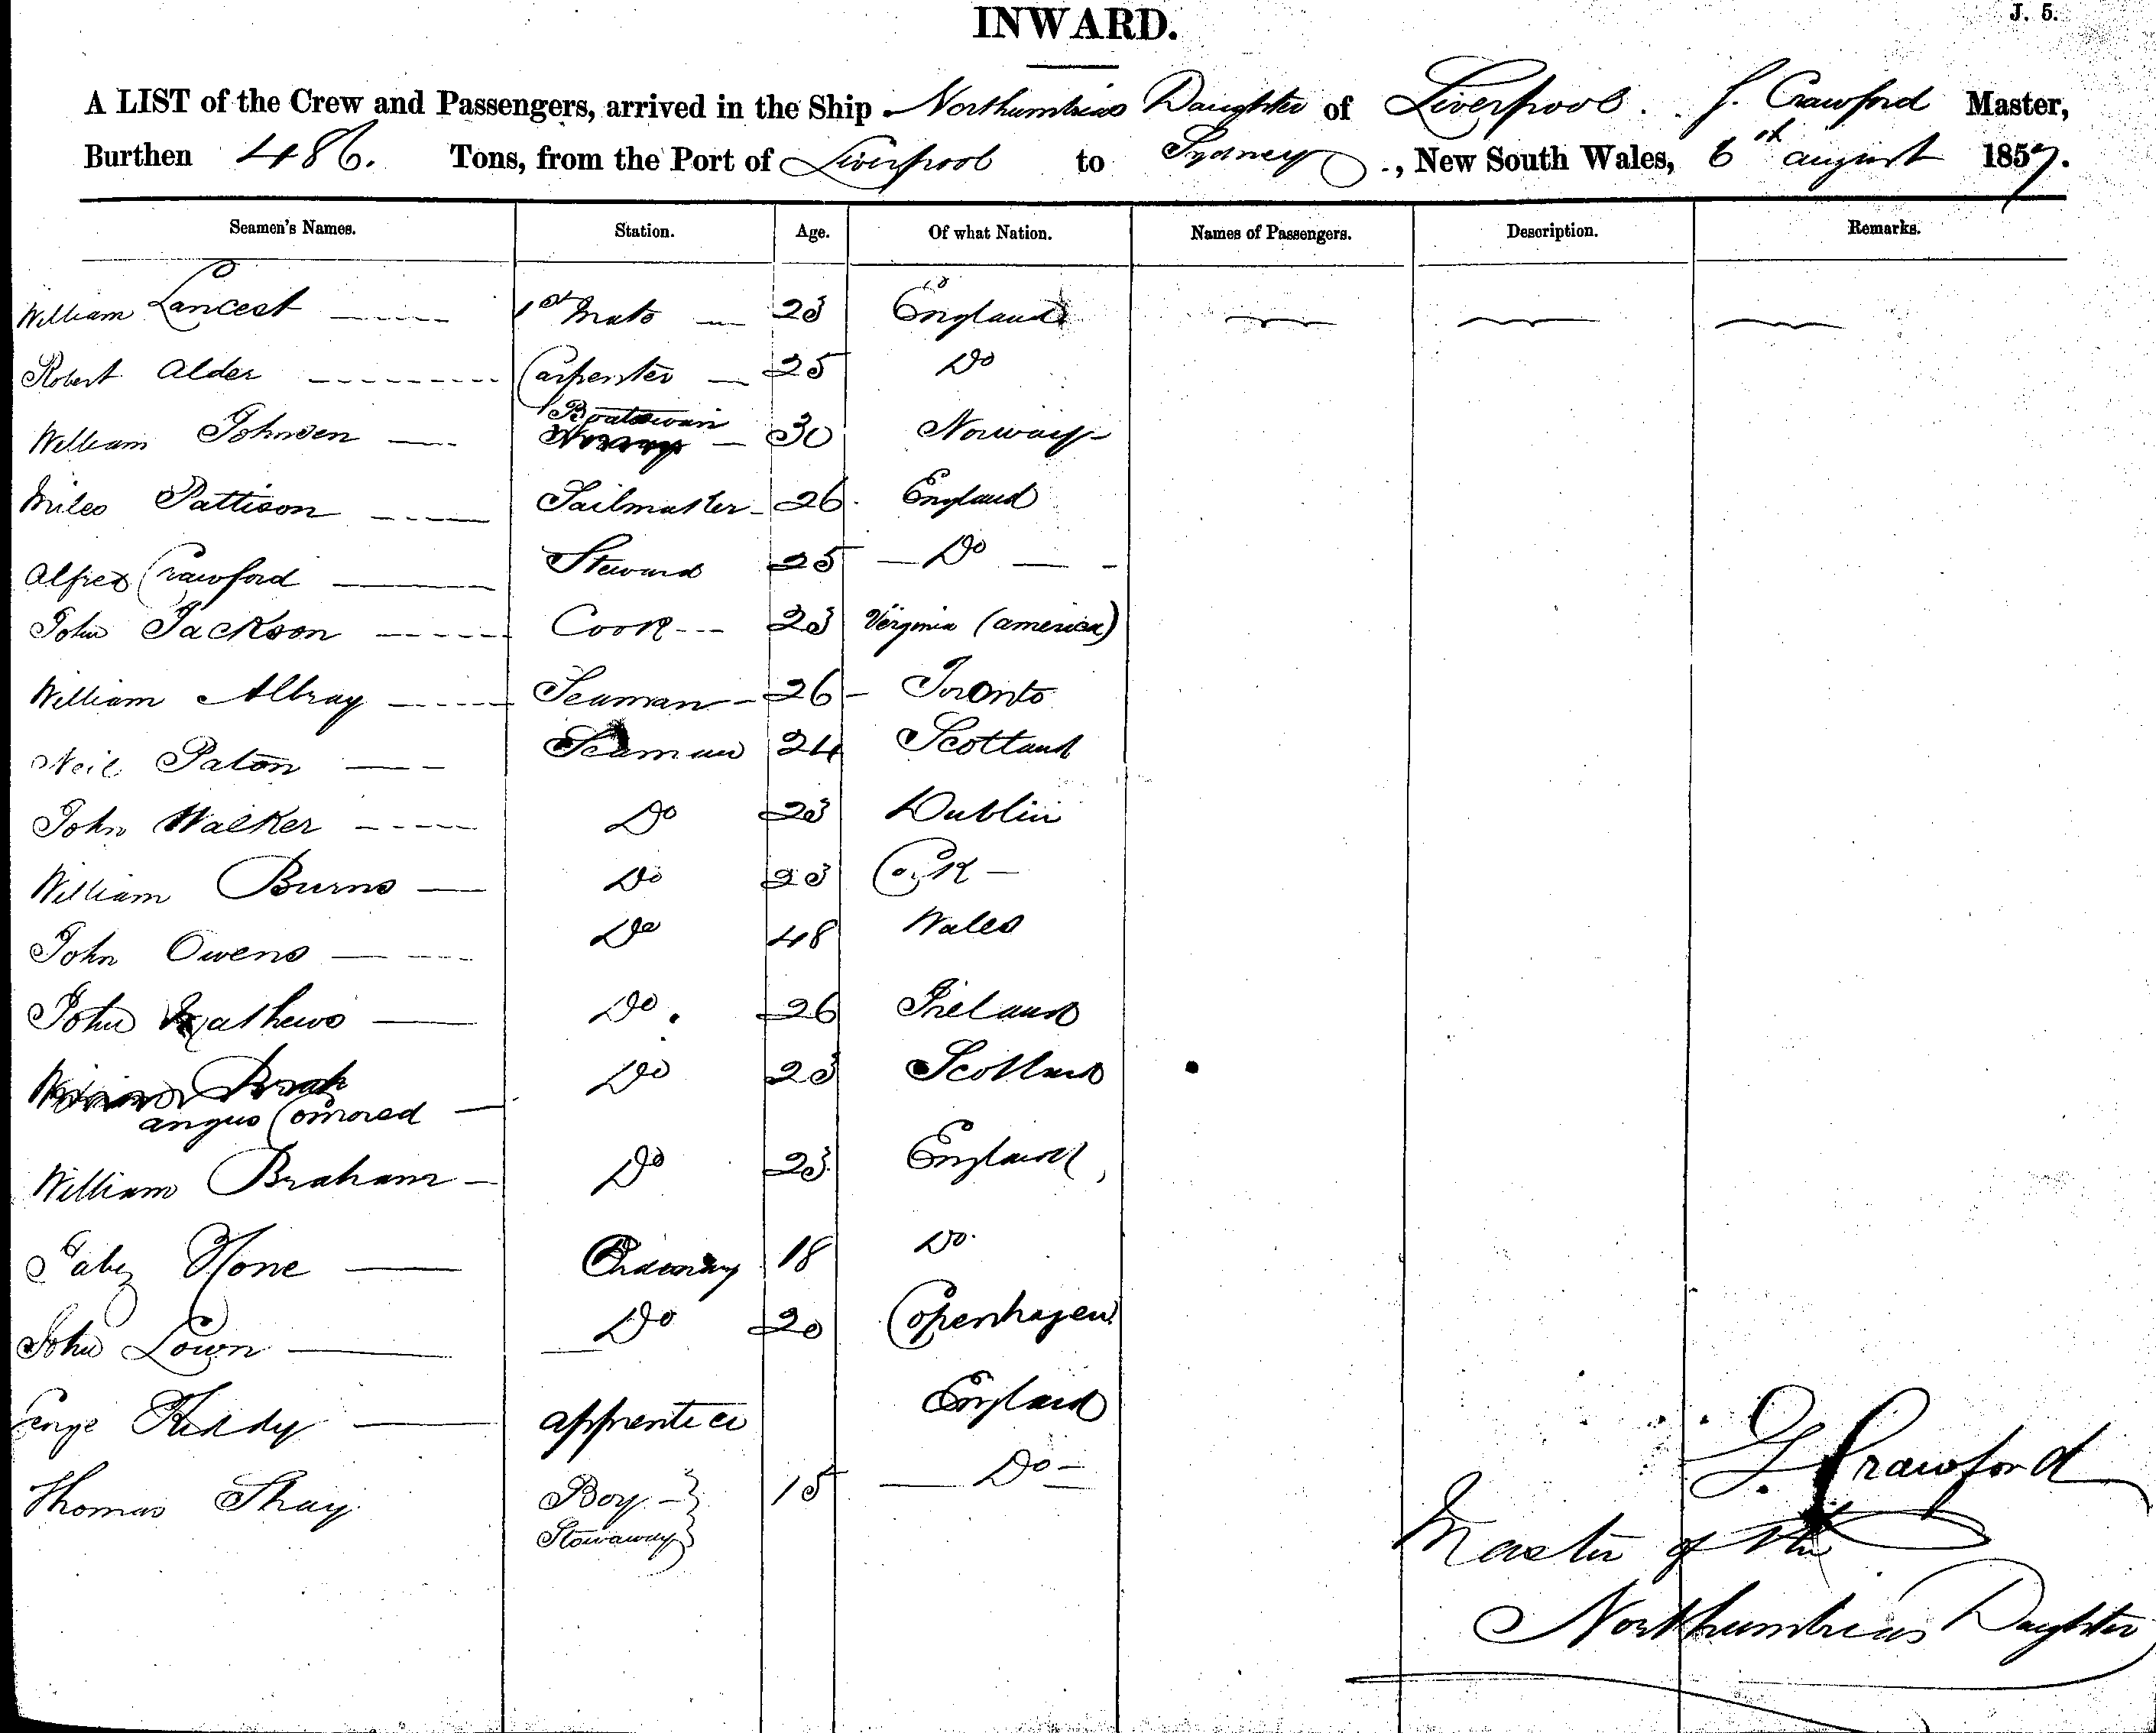 INWARD.
J. 5.
A LIST of the Crew and Passengers, arrived in the Ship Northumbrias Daughter of Liverpool. J. Crawford Master,
Burthen 486. Tons, from the Port of Liverpool to Sydney, New South Wales, 6th august 1857.
Seamen's Names. Station. Age. Of what Nation. Names of Passengers. Description. Remarks.
William Lancest 1st Mate 23 England
Robert Alder Carpenter 25 Do
William Johnsen Boatswain 30 Norway
Miles Pattison Sailmaker 26 England
Alfred Crawford Steward 25 Do
John Jackson Cook 23 Virginia (america)
William Albray Seaman 26 Toronto
Neil Paton Seaman 24 Scotland
John Walker Do 23 Dublin
William Burns Do 23 Cork
John Owens Do 48 Wales
John Mathews Do. 26 Ireland
Do 23 Scotland
angus Comored
William Braham Do 23 England
Jabez Hone 18 Do.
John Lown Do 20 Copenhagen
George Kiddy apprentice England
Thomas Shay Boy } 15 Do
Stowaway }
G. Crawford
Master of the
Northumbrias Daughter